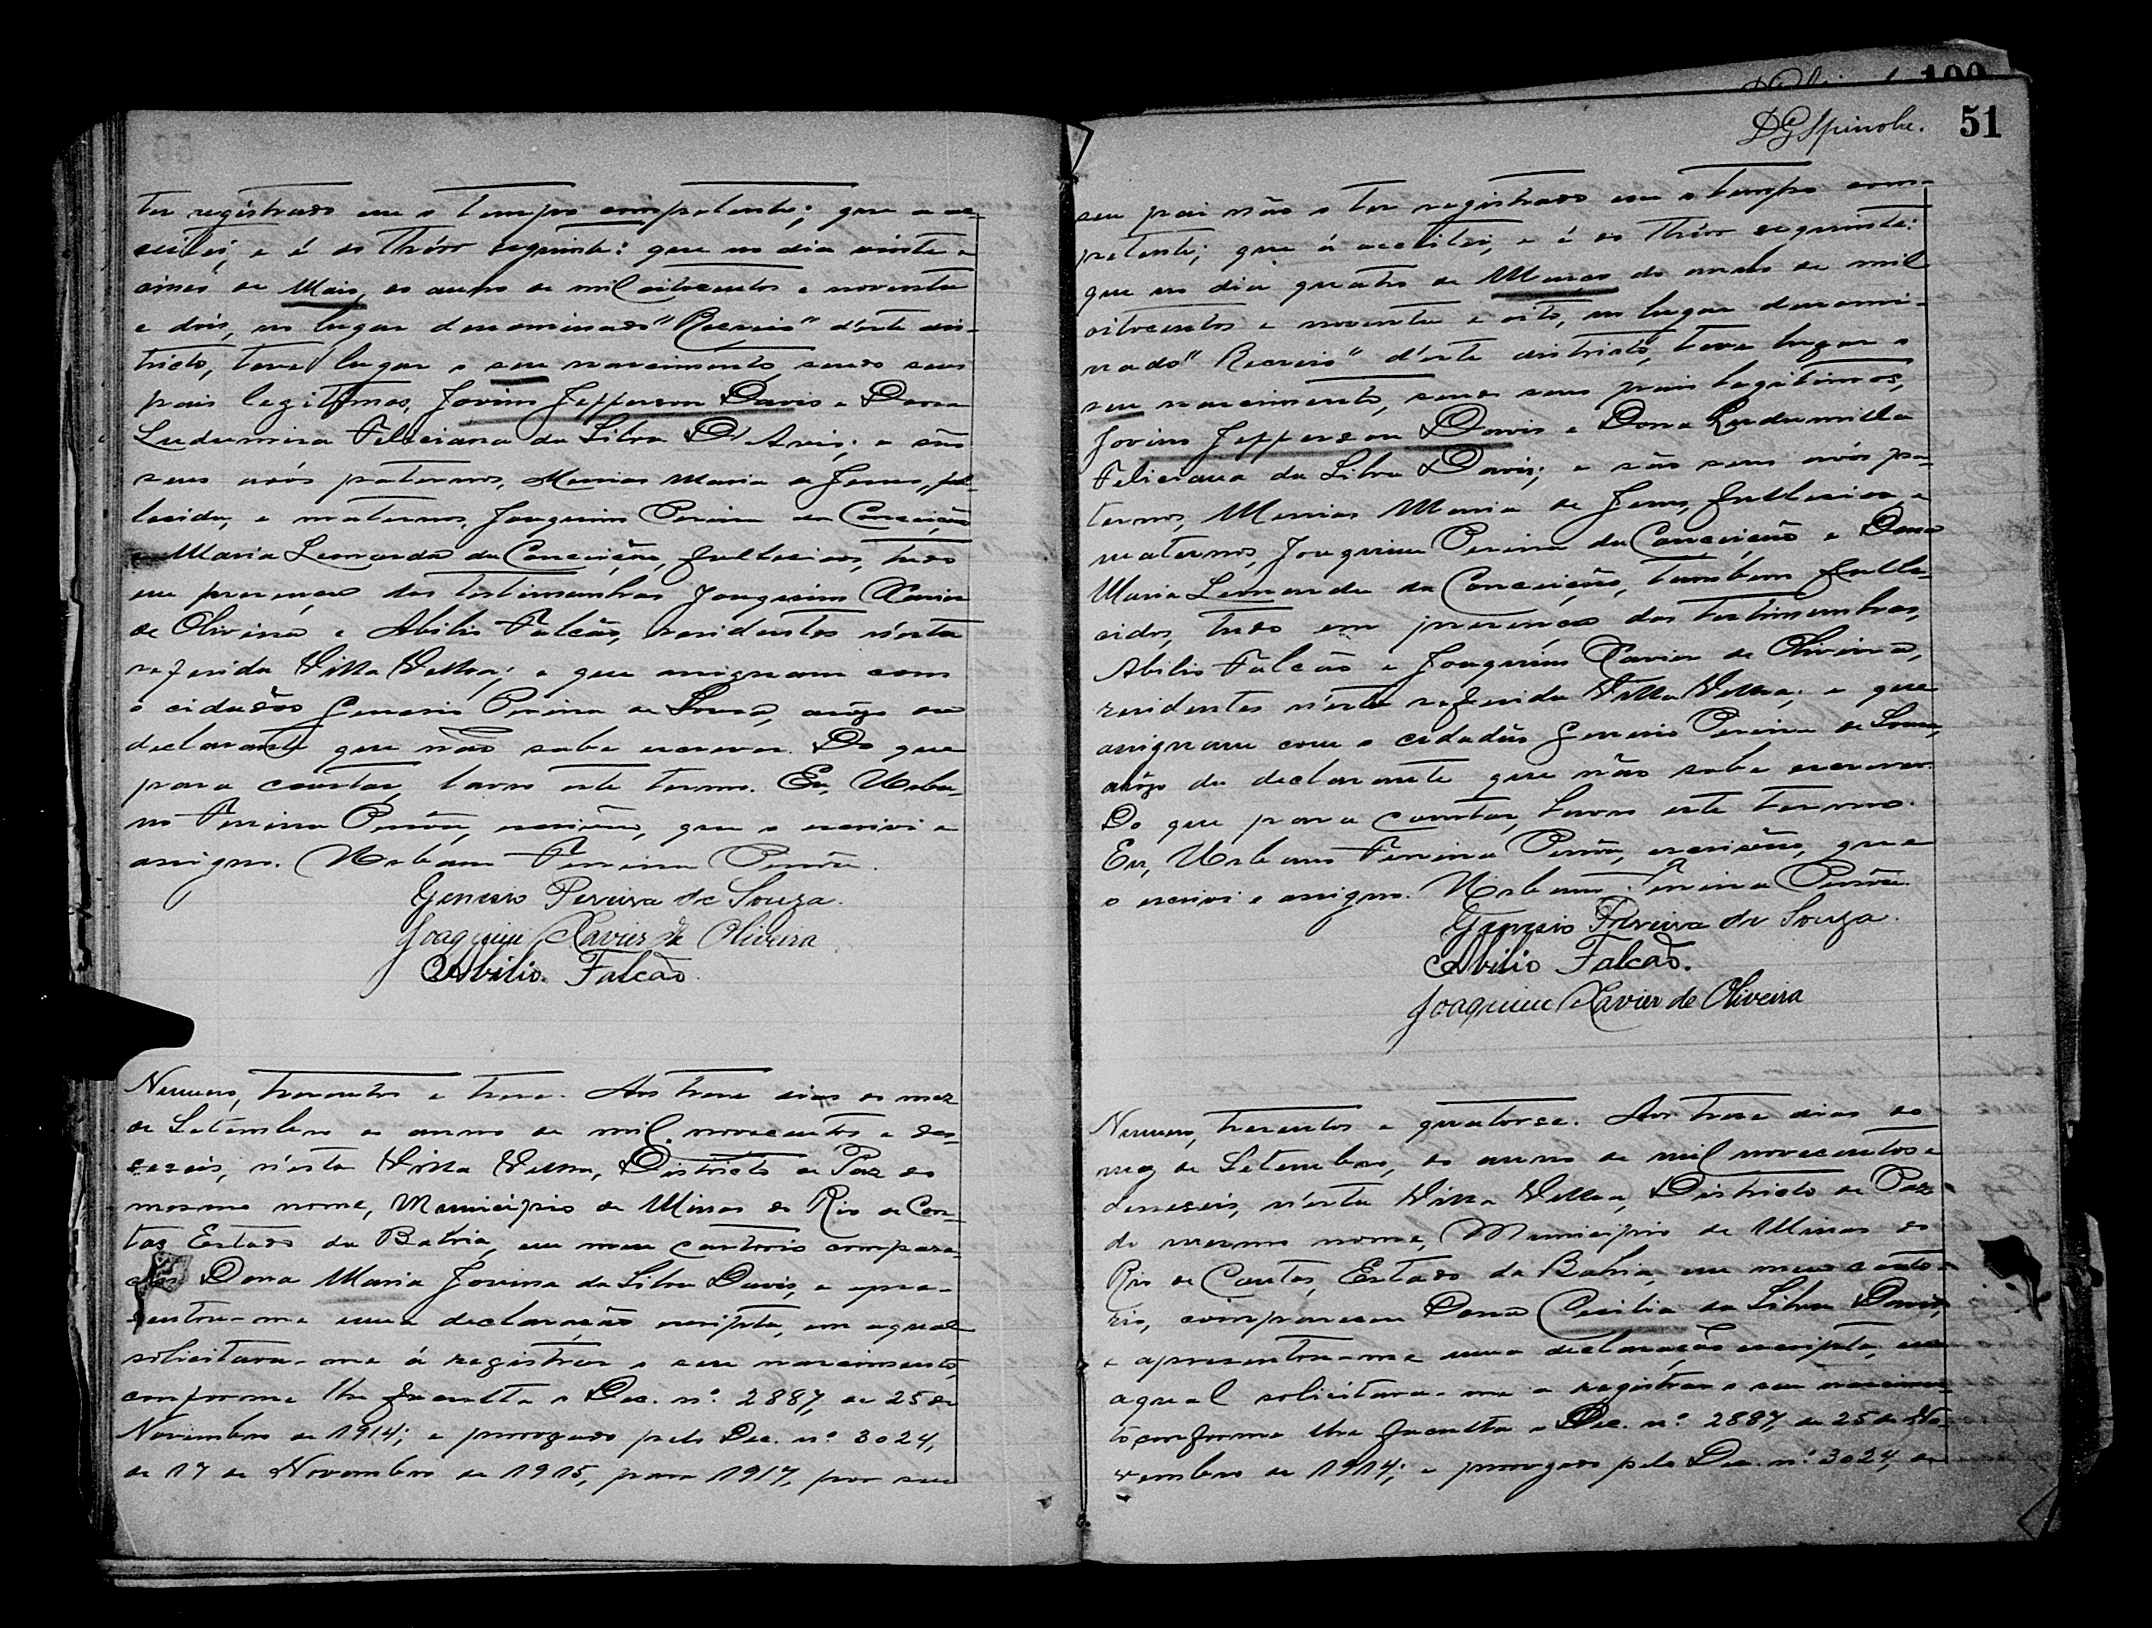 ter registrado em o tempo competente; que a ac-
ceitei, e é do theôr seguinte: que no dia vinte e
cinco de Maio, do anno de mil oitocentos e noventa
e dois, no lugar denominado "Recreio" d'este dis-
tricto, teve lugar o seu nascimento, sendo seus
pais legitimos, Jovino Jefferson Davis e Dona
Ludumira Feliciana da Silva D'Avis; e são
seus avós paternos, Messias Maria de Jesus, fal-
lecida, e maternos, Joaquim Pereira da Conceição
e Maria Leonarda da Conceição, fallecidos, tudo
em presença das testimunhas Joaquim Xavier
de Oliveira e Abilio Falcão, residentes n'esta
referida Villa Velha; e que assignam com
o cidadão Genesio Pereira de Souza, arôgo da
declarante que não sabe escrever. Do que
para constar, lavro este termo. Eu, Urba-
no Ferreira Pessôa, escrivão, que o escrivi e
assigno. Urbano Ferreira Pessôa.
Genesio Pereira de Souza.
Joaquim Xavier de Oliveira
Abilio Falcão.
Numero, tresentos e trese. Aos trese dias do mez
de Setembro do anno de mil novecentos e des-
eseis, n'esta Villa Velha, Districto de Paz do
mesmo nome, Municipio de Minas do Rio de Con-
tas, Estado da Bahia, em meu cartorio compare-
ceu Dona Maria Jovina da Silva Davis, e apre-
sentou-me uma declaração escripta, em aqual
solicitava-me á registrar o seu nascimento,
conforme lhe faculta o Dec. nº. 2887, de 25 de
Novembro de 1914; e prorogado pelo Dec. nº 3024,
de 17 de Novembro de 1915, para 1917, por seu
DGSpinola. 51
seu pai não o ter registrado em o tempo com-
petente; que á acceitei, e é do theôr seguinte:
que no dia quatro de Março do anno de mil
oitocentos e noventa e oito, no lugar denomi-
nado "Recreio" d'este districto, teve lugar o
seu nascimento, sendo seus pais legitimos,
Jovino Jefferson Davis e Dona Ludumilla
Feliciana da Silva Davis; e são seus avós pa-
ternos, Messias Maria de Jesus, fallecida e
maternos, Joaquim Pereira da Conceição e Dona
Maria Leonarda da Conceição, tambem falle-
cidos, tudo em presença das testimunhas,
Abilio Falcão e Joaquim Xavier de Oliveira,
residentes n'esta referida Villa Velha; e que
assignam com o cidadão Genesio Pereira de Souza,
arôgo da declarante que não sabe escrever.
Do que para constar, lavro este termo.
Eu, Urbano Ferreira Pessôa, escrivão, que
o escrivi e assigno. Urbano Ferreira Pessôa.
Genesio Pereira de Souza.
Abilio Falcão.
Joaquim Xavier de Oliveira
Numero, tresentos e quatorse. Aos trese dias do
mez de Setembro, do anno de mil novecentos e
deseseis, n'esta Villa Velha, Districto de Paz
do mesmo nome, Municipio de Minas do
Rio de Contas, Estado da Bahia, em meu carto-
rio, compareceu Dona Cecilia da Silva Davis,
e apresentou-me uma declaração escripta, em
aqual solicitava-me a registrar o seu nascimen-
to conforme lhe faculta o Dec. nº 2887, de 25 de No-
vembro de 1914; e prorogado pelo Dec. nº 3024, de